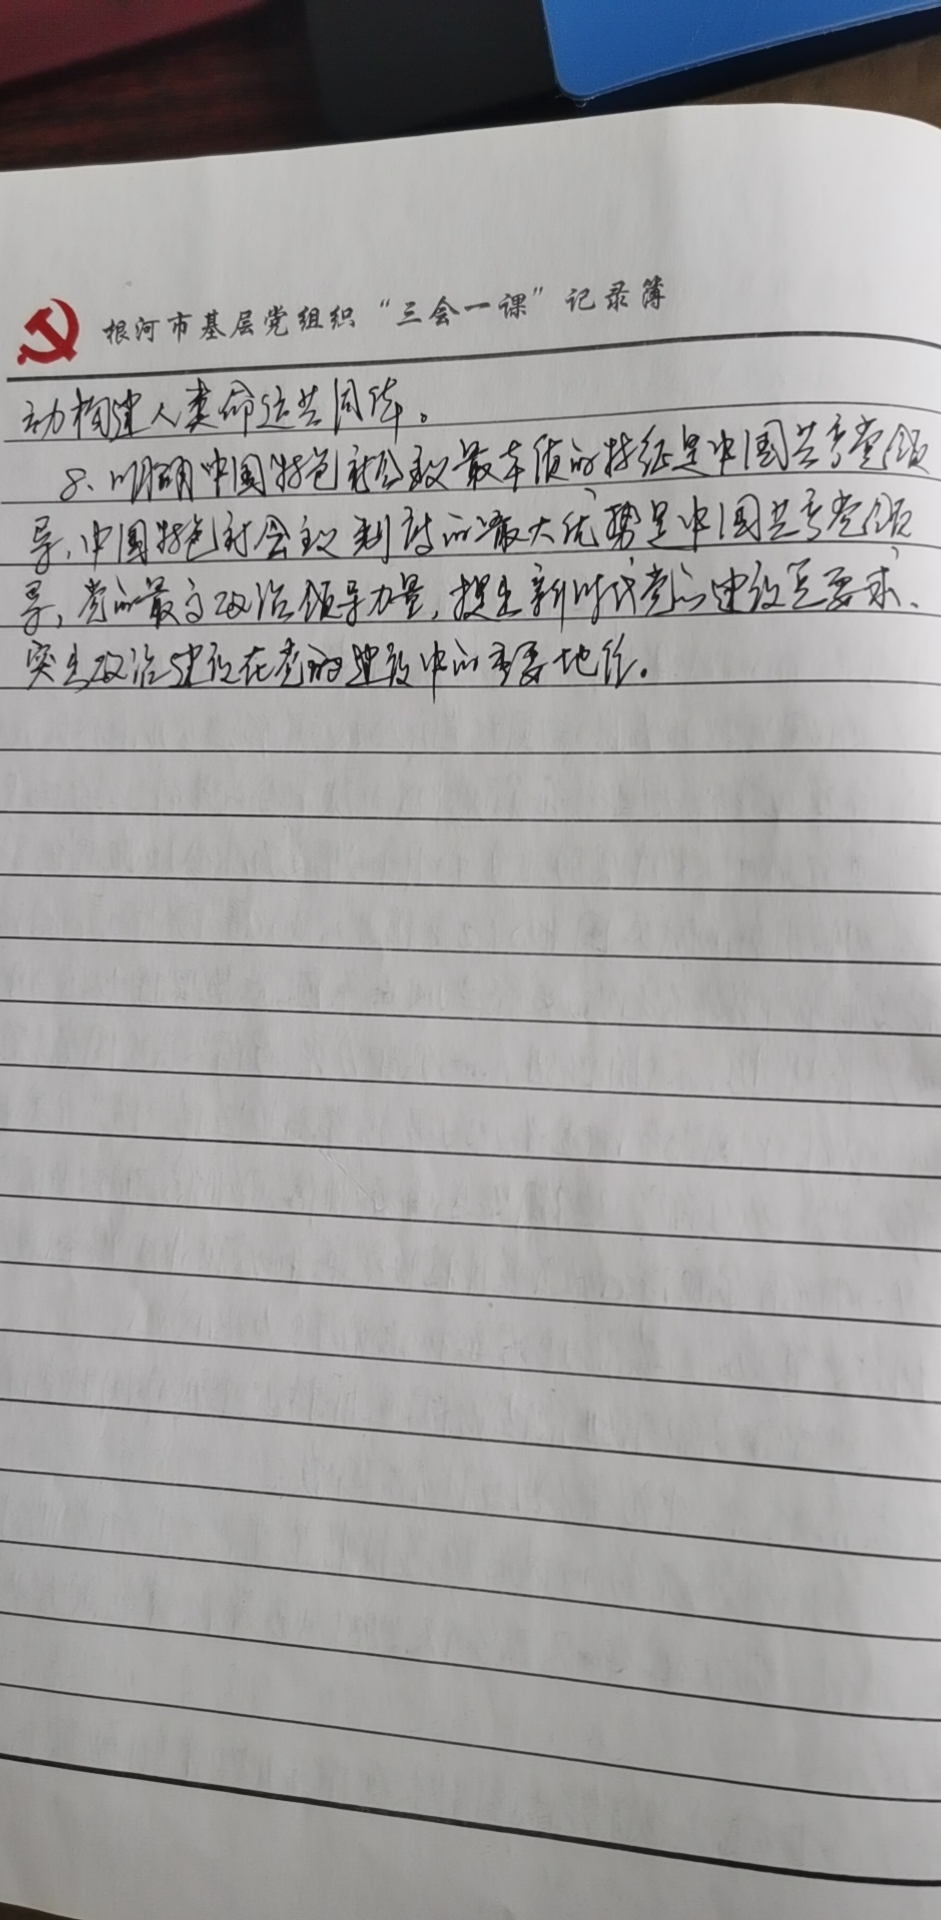 根河市基层党组织“三会一课”记录簿
动构建人类命运共同体。
8、明确中国特色社会主义最本质的特征是中国共产党领
导,中国特色社会主义制度的最大优势是中国共产党领
导,党的最高政治领导力量,提出新时代党的建设总要求、
突出政治建设在党的建设中的重要地位。